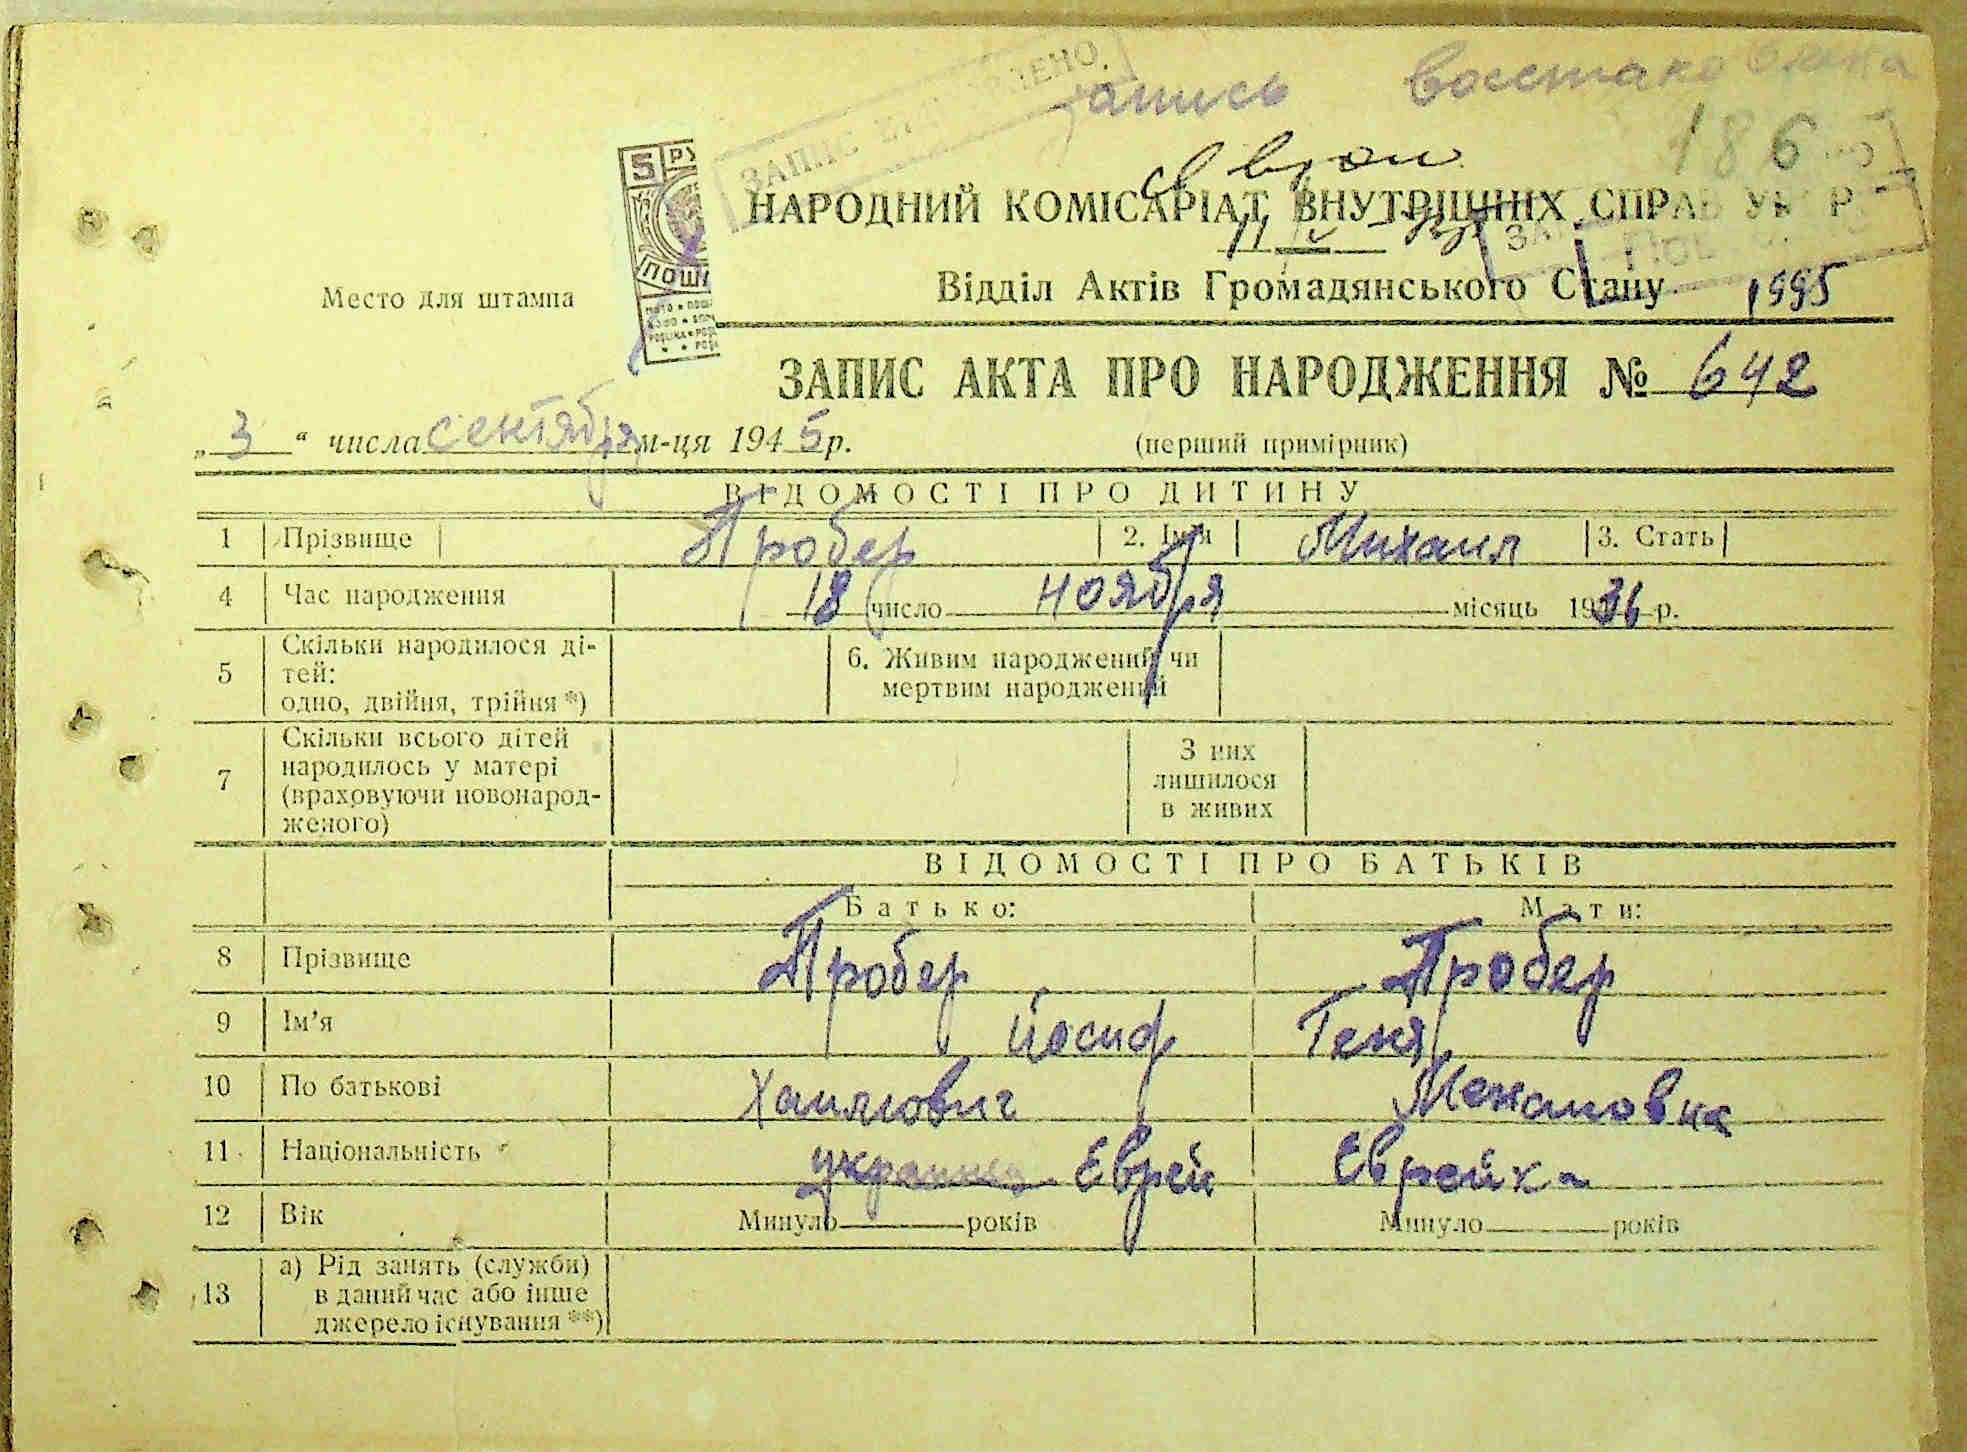 запись восстановлена
ЗАПИС
186
НАРОДНИЙ КОМІСАРІАТ ВНУТРІШНІХ СПРАВ УРСР
5 РУ
ПОШ
Место для штампа
Відділ Актів Громадянського Стану 1995
ЗАПИС АКТА ПРО НАРОДЖЕННЯ № 642
„3“ числа сентября м-ця 1945 р. (перший примірник)
ВІДОМОСТІ ПРО ДИТИНУ
1 Прізвище Пробер 2. Ім'я Михаил 3. Стать
4 Час народження 18 число ноября місяць 1936 р.
5 Скільки народилося ді-
тей:
одно, двійня, трійня *)
6. Живим народжений чи
мертвим народжений
7 Скільки всього дітей
народилось у матері
(враховуючи новонарод-
женого)
З них
лишилося
в живих
ВІДОМОСТІ ПРО БАТЬКІВ
Батько: Мати:
8 Прізвище Пробер Пробер
9 Ім'я Йосиф Геня
10 По батькові Хаимович
11 Національність Еврей Еврейка
12 Вік Минуло років Минуло років
13 а) Рід занять (служби)
в даний час або інше
джерело існування **)